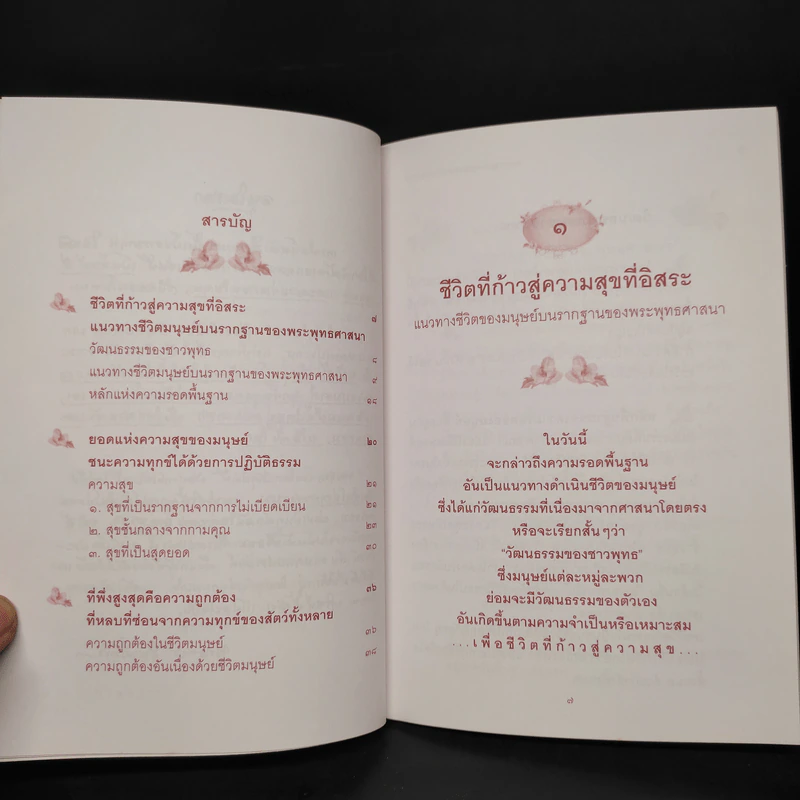 สารบัญ
ชีวิตที่ก้าวสู่ความสุขที่อิสระ ๗
แนวทางชีวิตมนุษย์บนรากฐานของพระพุทธศาสนา
วัฒนธรรมของชาวพุทธ ๘
แนวทางชีวิตมนุษย์บนรากฐานของพระพุทธศาสนา ๙
หลักแห่งความรอดพื้นฐาน ๑๘
ยอดแห่งความสุขของมนุษย์ ๒๐
ชนะความทุกข์ได้ด้วยการปฏิบัติธรรม
ความสุข ๒๑
๑. สุขที่เป็นรากฐานจากการไม่เบียดเบียน ๒๑
๒. สุขชั้นกลางจากกามคุณ ๒๓
๓. สุขที่เป็นสุดยอด ๓๐
ที่พึ่งสูงสุดคือความถูกต้อง ๓๖
ที่หลบที่ซ่อนจากความทุกข์ของสัตว์ทั้งหลาย
ความถูกต้องในชีวิตมนุษย์ ๓๖
ความถูกต้องอันเนื่องด้วยชีวิตมนุษย์ ๓๘
๑
ชีวิตที่ก้าวสู่ความสุขที่อิสระ
แนวทางชีวิตของมนุษย์บนรากฐานของพระพุทธศาสนา
ในวันนี้
จะกล่าวถึงความรอดพื้นฐาน
อันเป็นแนวทางดำเนินชีวิตของมนุษย์
ซึ่งได้แก่วัฒนธรรมที่เนื่องมาจากศาสนาโดยตรง
หรือจะเรียกสั้นๆว่า
“วัฒนธรรมของชาวพุทธ”
ซึ่งมนุษย์แต่ละหมู่ละพวก
ย่อมจะมีวัฒนธรรมของตัวเอง
อันเกิดขึ้นตามความจำเป็นหรือเหมาะสม
...เพื่อชีวิตที่ก้าวสู่ความสุข...
๗